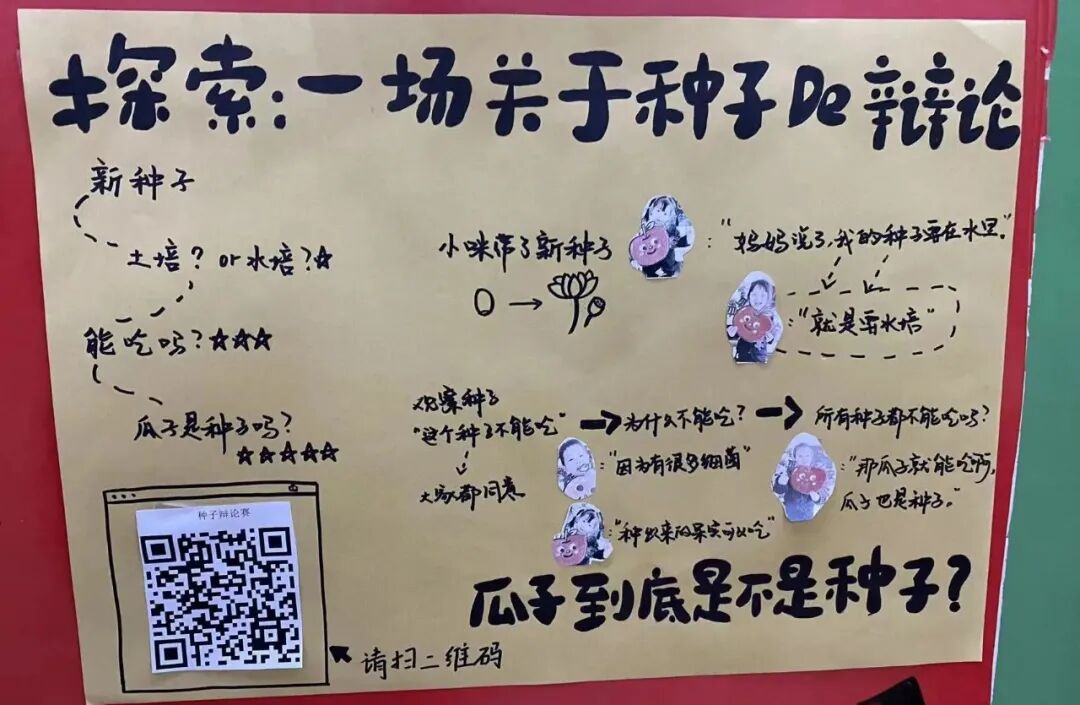 探索:一场关于种子De辩论
新种子
土培?or水培?☆
能吃吗?☆☆☆
瓜子是种子吗?
☆☆☆☆☆
小咪带了新种子
:"妈妈说了,我的种子要在水里."
:"就是要水培"
观察种子
"这个种子不能吃"
大家都同意
为什么不能吃?
:"因为有很多细菌"
:"种出来的果实可以吃"
所有种子都不能吃吗?
:"那瓜子就能吃啊,
瓜子也是种子."
瓜子到底是不是种子?
种子辩论赛
请扫二维码